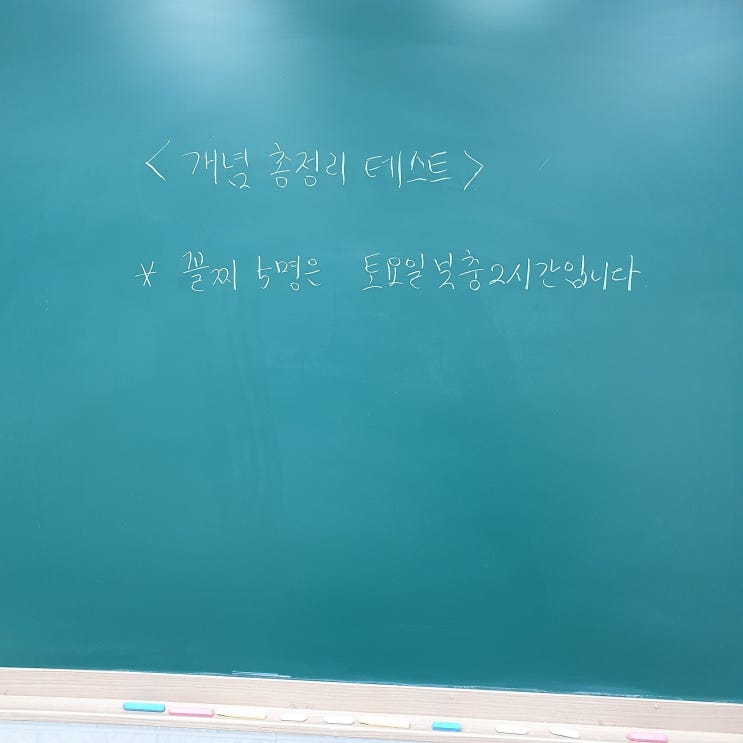 <개념 총정리 테스트>
* 꼴찌 5명은 토요일 보충 2시간입니다.